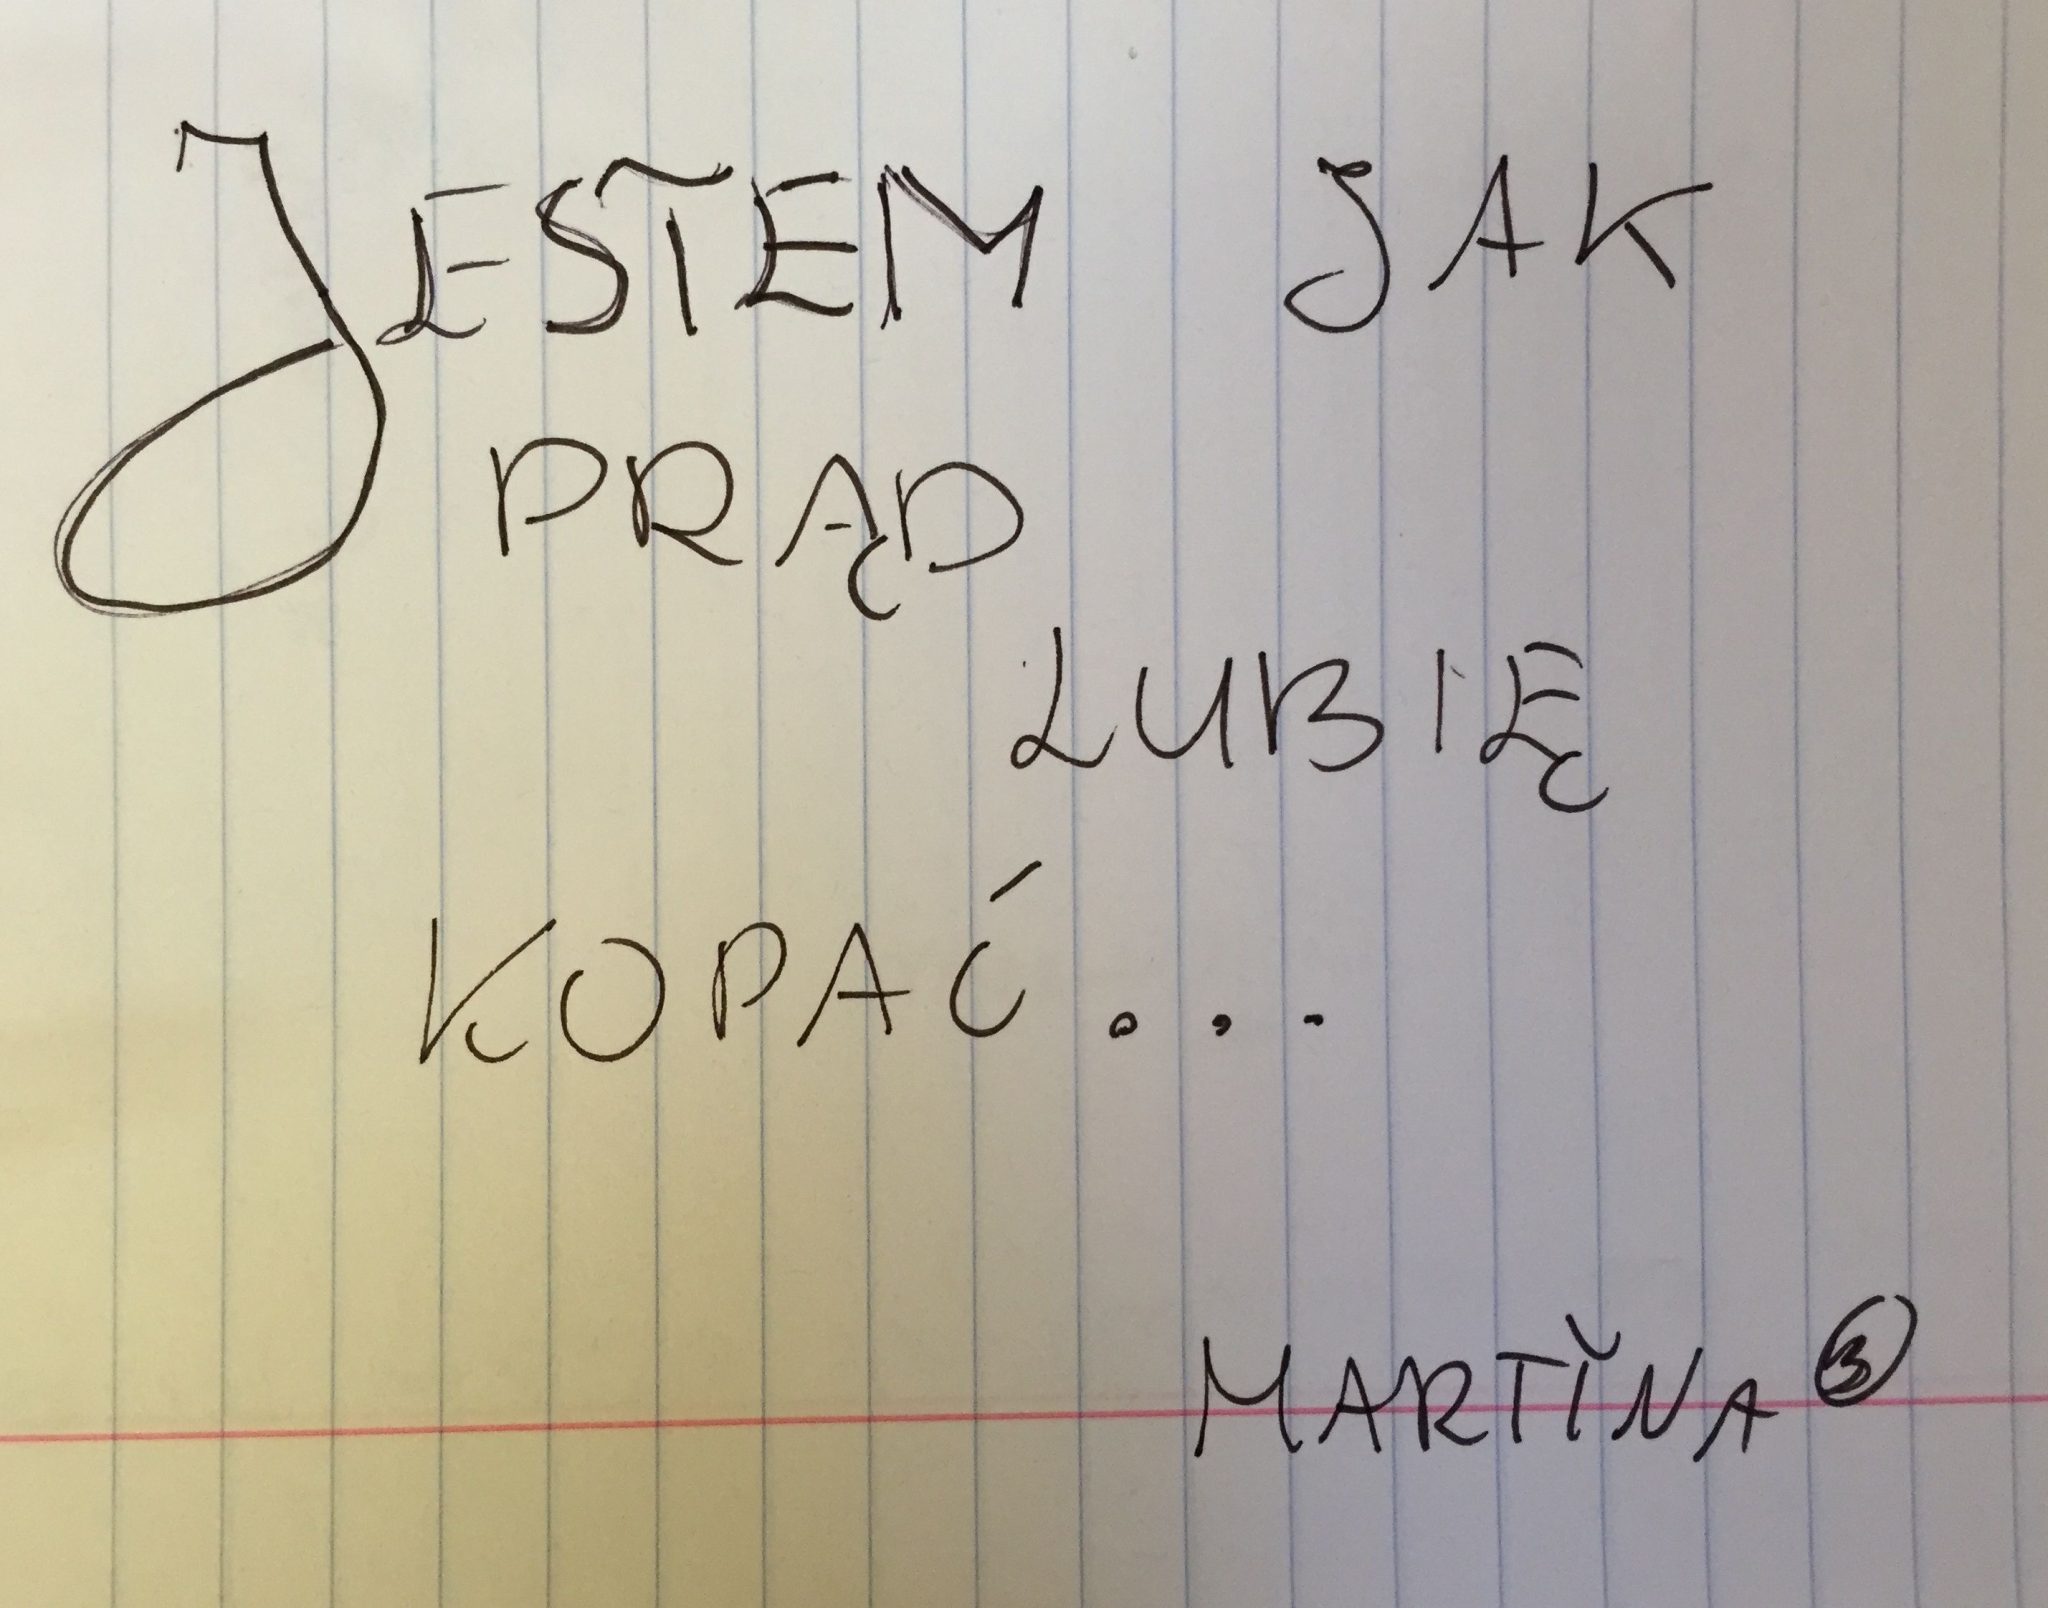 JESTEM JAK
PRĄD
LUBIĘ
KOPAĆ...
MARTĬNA